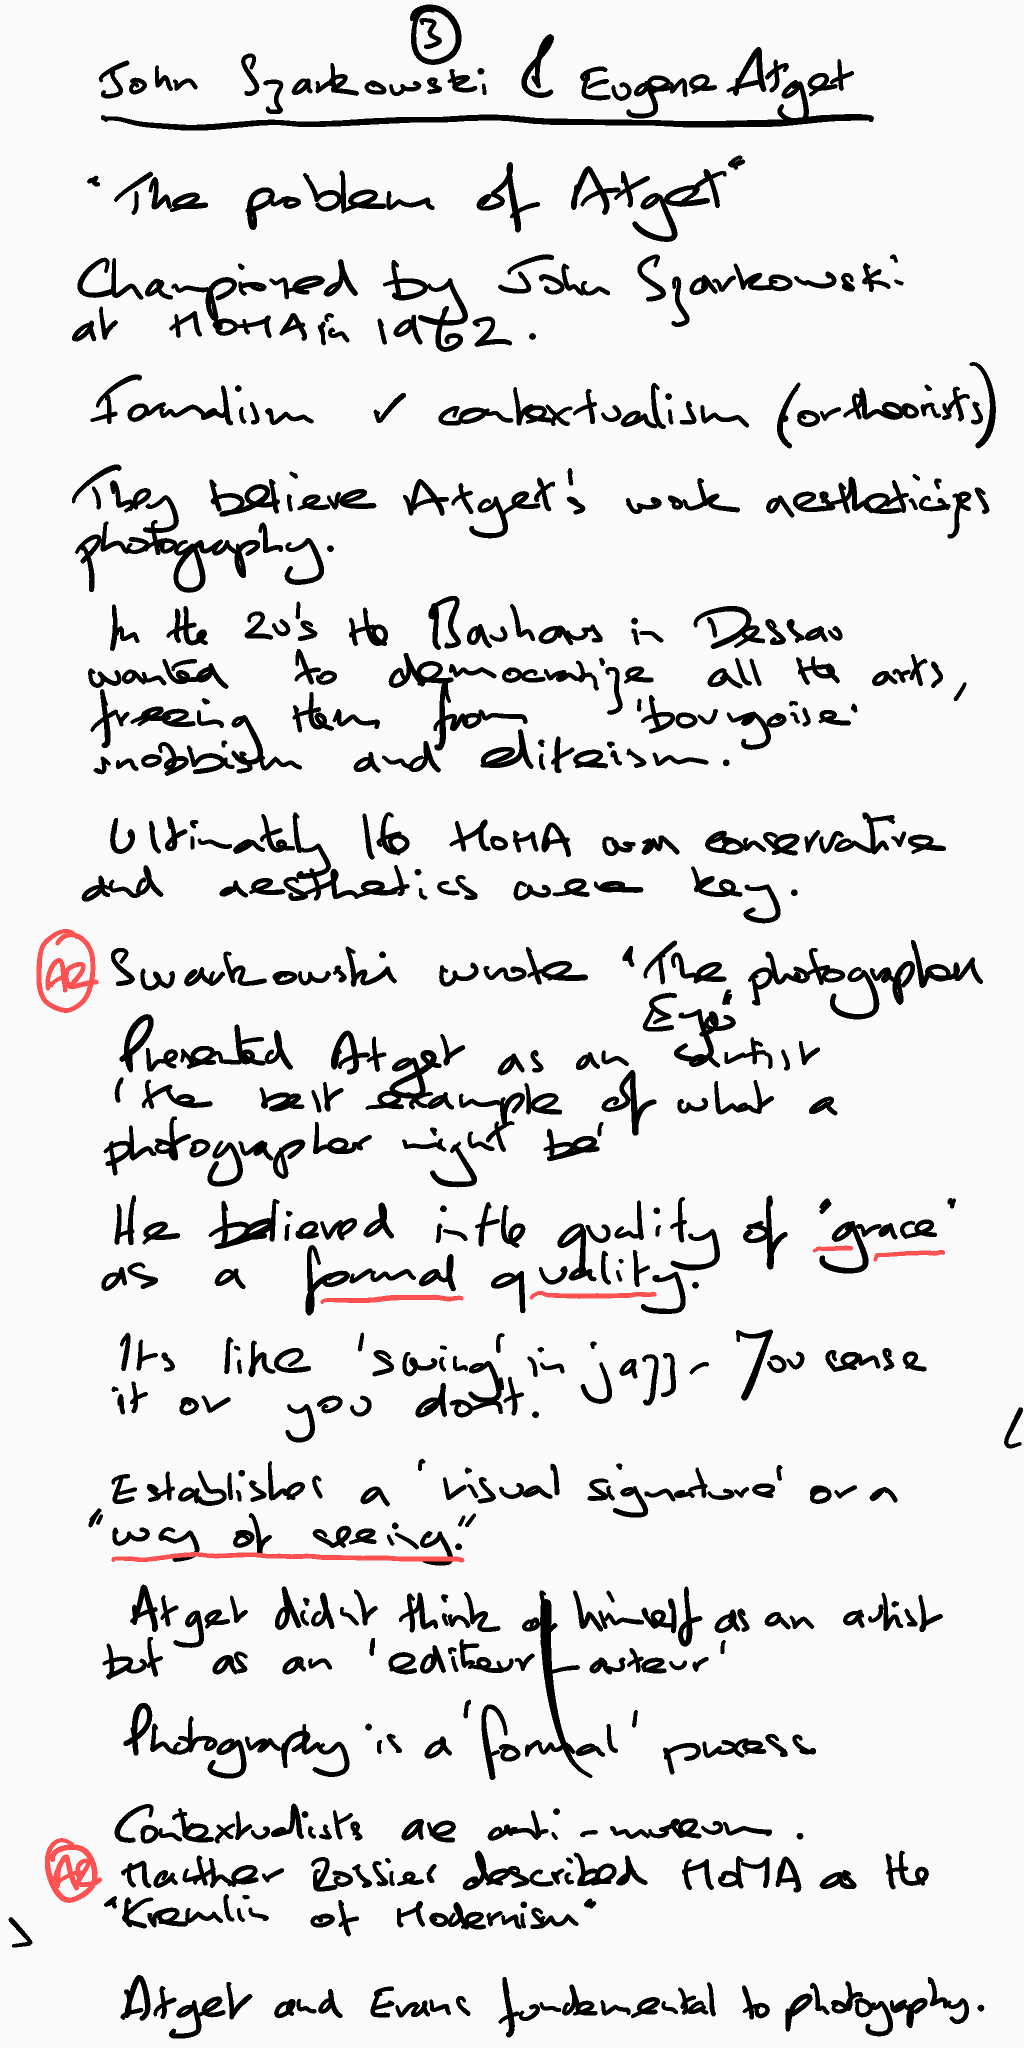 3
John Szarkowski & Eugene Atget
"The problem of Atget"
Championed by John Szarkowski
at MOMA in 1962.
Formalism v contextualism (or theorists)
They believe Atget's work aestheticizes
photography.
In the 20's the Bauhaus in Dessau
wanted to democratize all the arts,
freeing them from 'bourgoise'
snobbism and eliteism.
Ultimately tho MOMA was conservative
and aesthetics were key.
A2 Swarkowski wrote "The photographer
Eye"
Presented Atget as an artist
'the best example of what a
photographer might be'
He believed in the quality of 'grace'
as a formal quality.
Its like 'swing' in jazz - You sense
it or you don't.
Establishes a 'visual signature' or a
"way of seeing."
Atget didn't think of himself as an artist
but as an 'editeur - auteur'
Photography is a 'formal' process
Contextualists are anti-museum.
A2 Marther Rossler described MOMA as the
"Kremlin of Modernism"
Atget and Evans fundemental to photography.